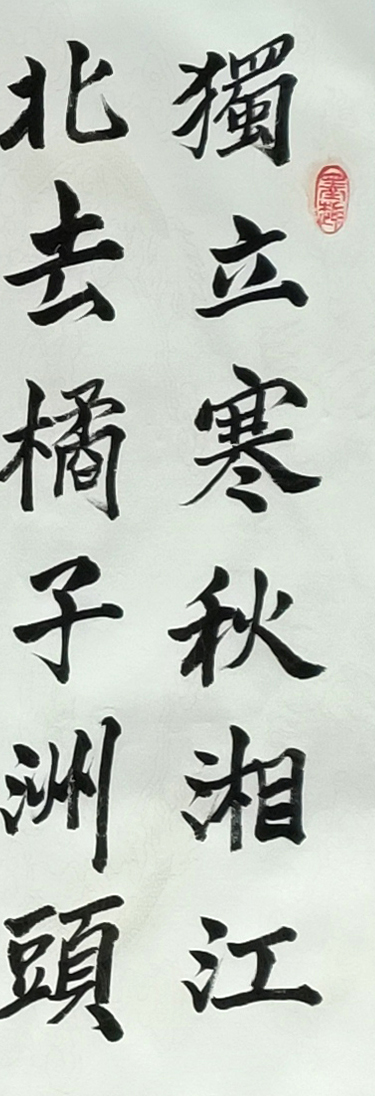 獨立寒秋湘江
北去橘子洲頭
墨趣